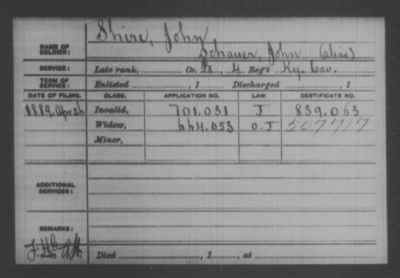 Shire, John
NAME OF SOLDIER: Schauer, John (alias)
SERVICE: Late rank, Co. 4 Reg't Ky. Cav.
TERM OF SERVICE: Enlisted , 1 Discharged , 1
DATE OF FILING. CLASS. APPLICATION NO. LAW. CERTIFICATE NO.
1889 Apr 26 Invalid, 701.031 J 839.063
Widow, 664.053 O.J 507717
Minor,
ADDITIONAL SERVICES:
REMARKS:
Died , 1 , at